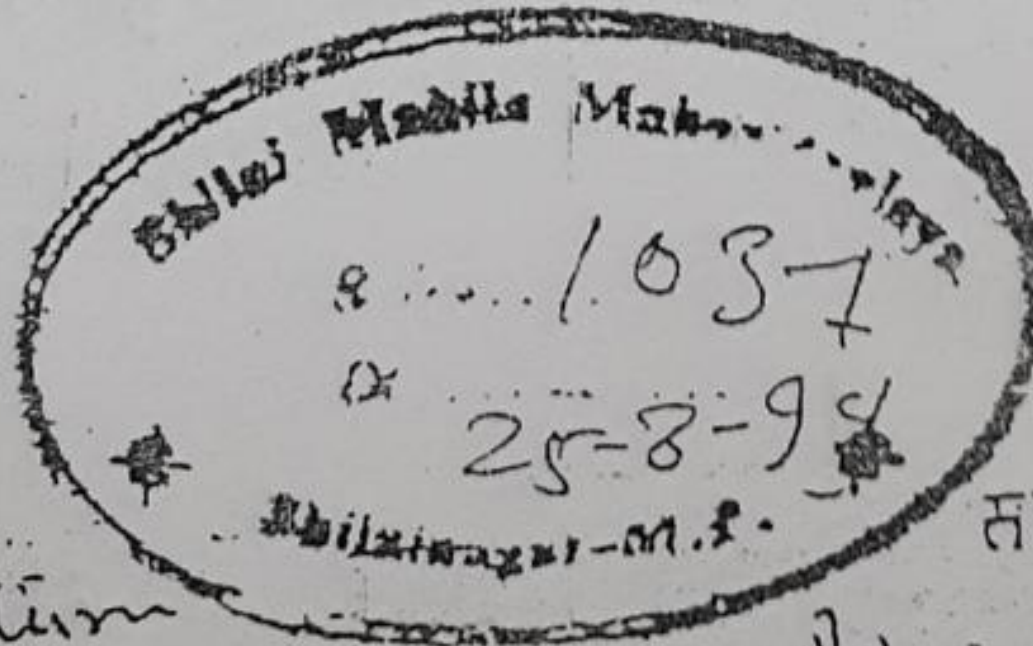 Bhilai Mahila Maha......laya
1037
25-8-94
Bhilainagar-M.P.